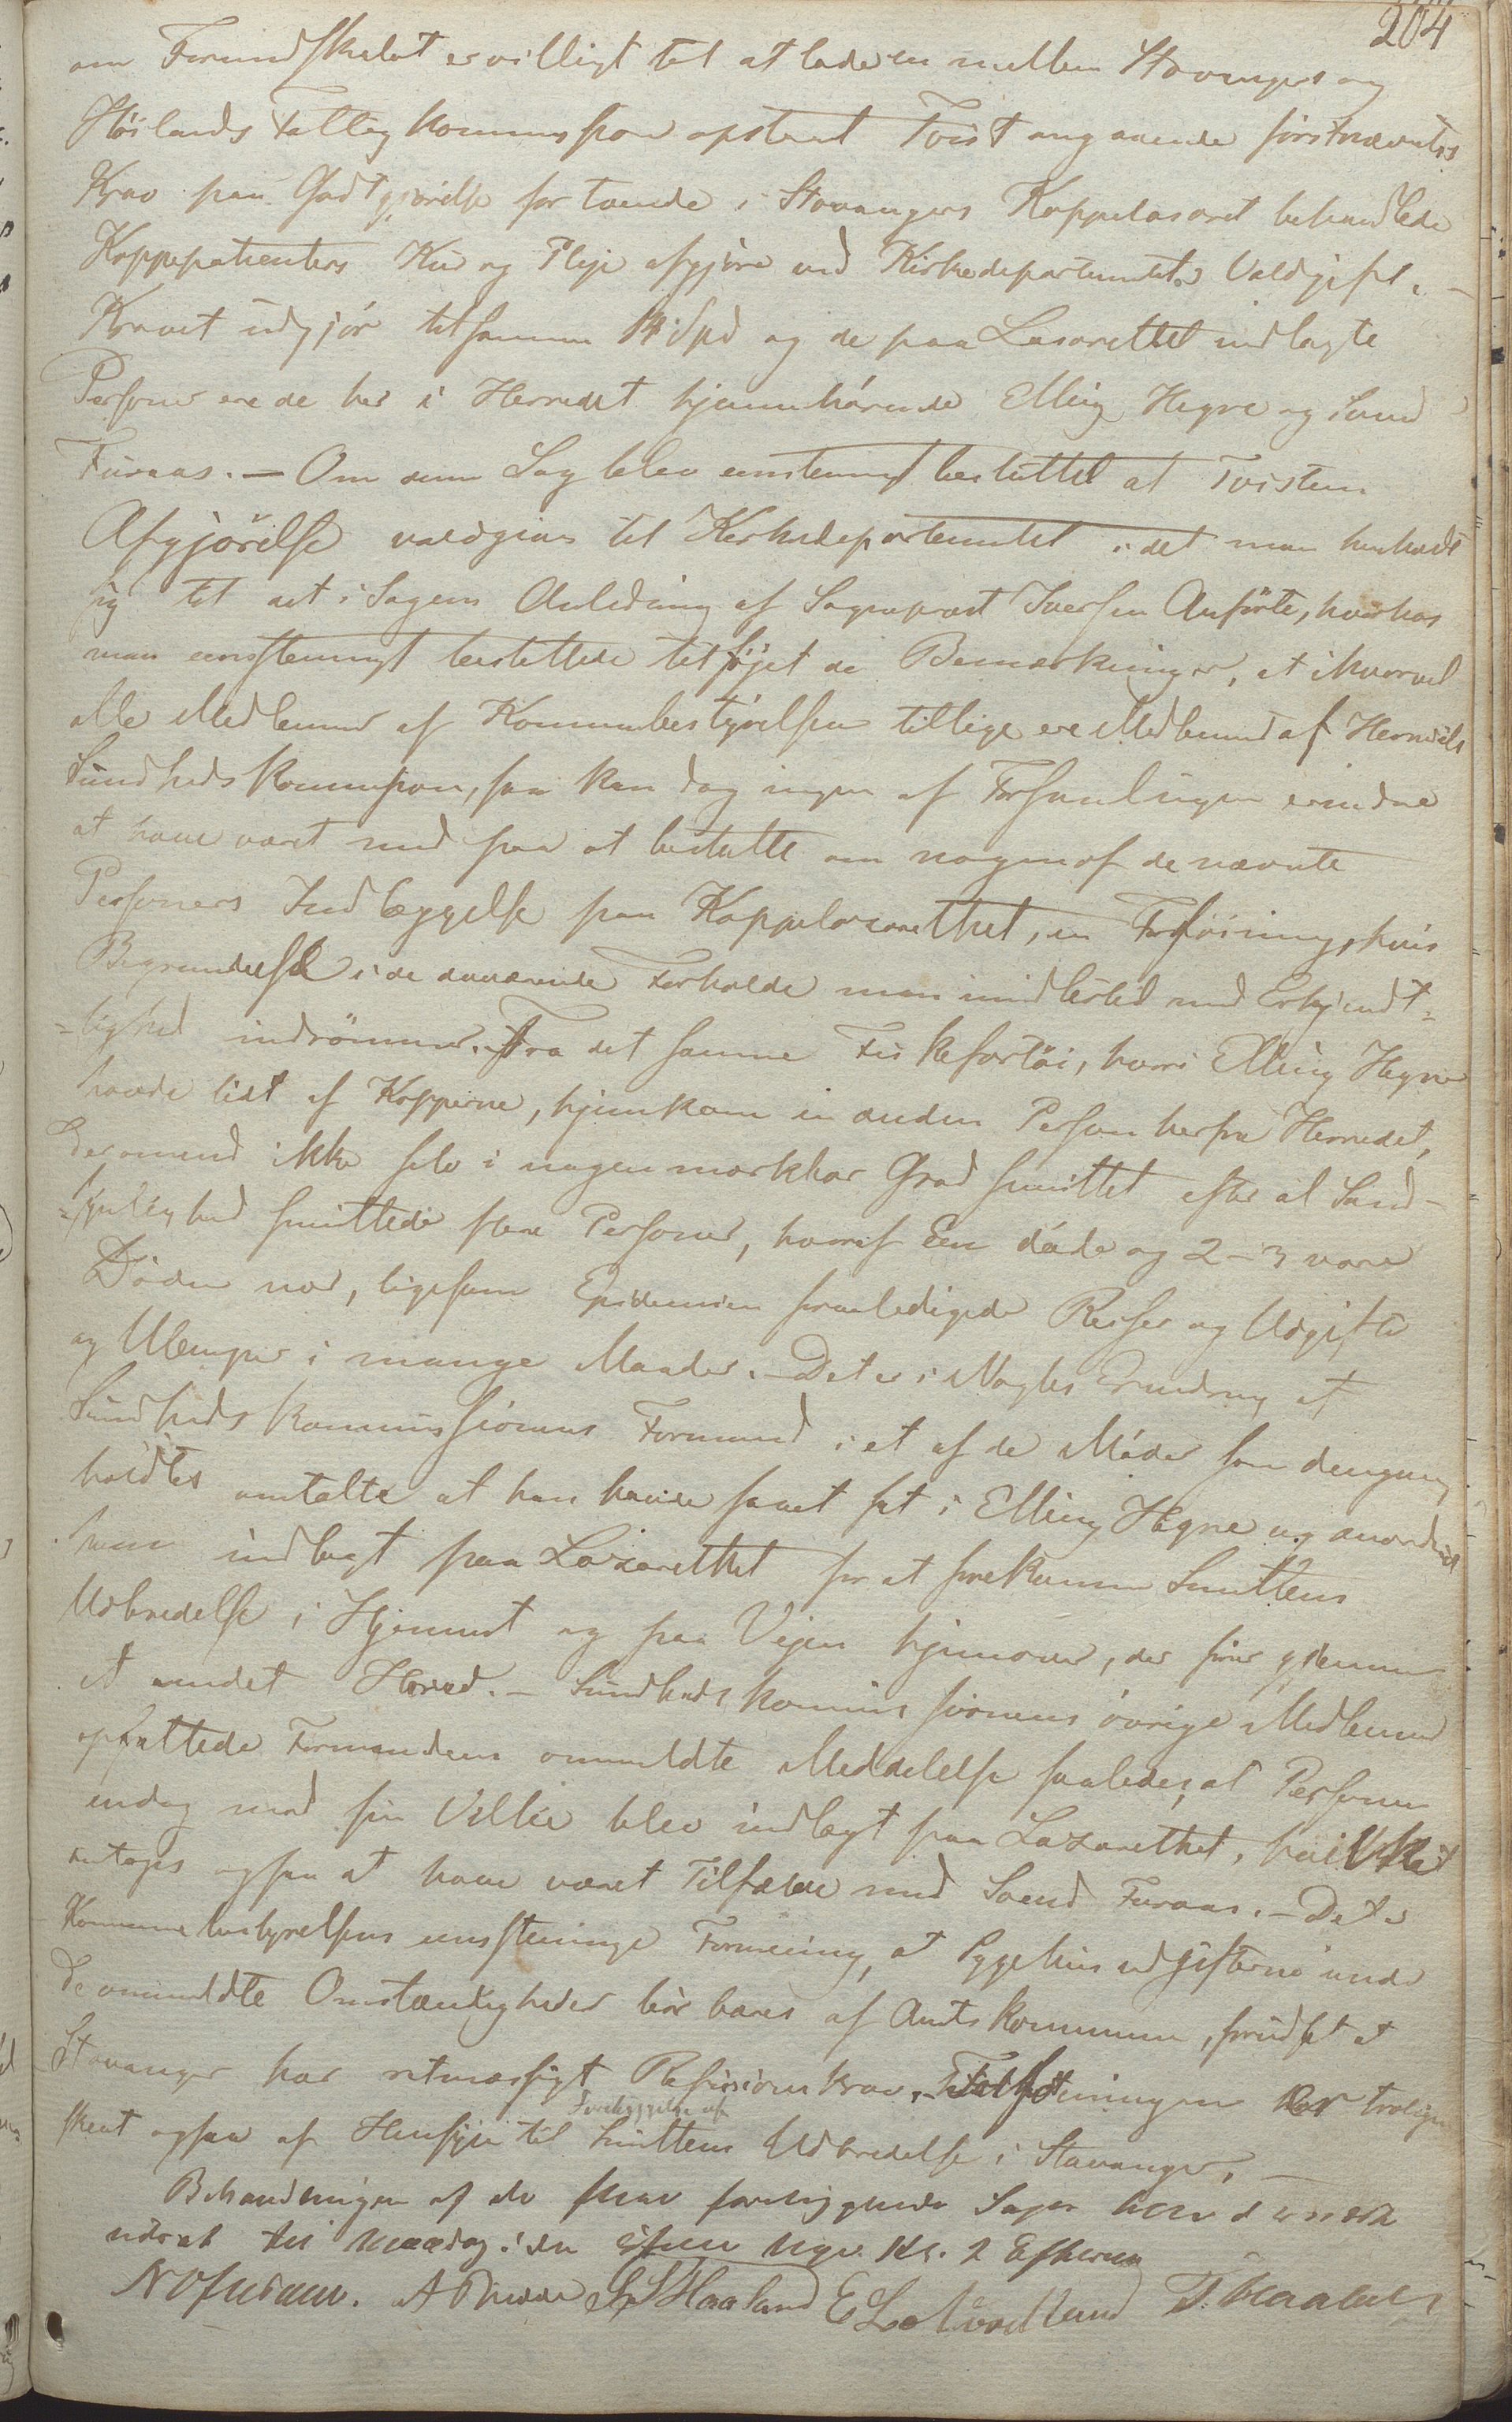 204
om Formandskabet er villigt til at lade en mellem Stavangers og
Höilands Fattigkommission opstaaet Tvist angaaende förstnævntes
Krav paa Godtgjörelse for tvende i Stavangers Koppelasaret behandlede
Koppepatienters Kur og Pleje afgjöre ved Kirkedepartementets Voldgift. –
Kravet udgjör tilsammen 14 Spd og de paa Lasarettet indlagte
Personer ere de her i Herredet hjemmehörende Elling Hegre og Svend
Furaas. – Om denne Sag blev eenstemmigt besluttet at Tvistens
Afgjörelse voldgives til Kirkedepartementet idet man henholdt
sig til det i Sagens Anledning af Sogneprest Iversen Anförte, hvorhos
man eenstemmigt besluttede tilföjet de Bemærkninger, at ihvorvel
alle Medlemmer af Kommunebestyrelsen tillige ere Medlemmer af Herredets
Sundhedskommission, saa kan dog ingen af Forsamlingen erindre
at have været med paa at beslutte om nogen af de nævnte
Personers Indlæggelse paa Koppelazarethet, en Forföining, hvis
Begrundelse i de daværende Forholde man imidlertid med Erkjendt-
-lighed indrömmer. Fra det samme Fiskefartöi, hvori Elling Hegre
havde lidt af Kopperne, hjemkom en anden Person herfra Herredet,
der omend ikke selv i nogen mærkbar Grad smittet efter al Sand-
-synlighed smittede flere Personer, hvoraf Een döde og 2-3 vare
Döden nær, ligesom Epidemien foranledigede Reiser og Udgifter
og Ulemper i mange Maader. – Det er i Nogles Erindring at
Sundhedskommissionens Formand i et af de Möder som dengang
holdtes omtalte at han havde faaet fat i Elling Hegre og anordnet
ham indlagt paa Lazarethet for at forekomme Smittens
Udbredelse i Hjemmet og paa Vejen hjemover, der förer gjennem
et andet Herred. – Sundhedskommissionens övrige Medlemmer
opfattede Formandens ommeldte Meddelelse saaledes, at Personen
endog mod sin Villie blev indlagt paa Lazarethet, hvilket
antages ogsaa at have været Tilfælde med Svend Furaas. – Det er
Kommunebestyrelsens eenstemmige Formening, at Sygehusudgifterne under
de ommeldte Omstændigheder bör bæres af Amtskommunen, forudsat at
Stavanger har retmæssigt Refusionskrav. Forföiningen er troligen
skeet ogsaa af Hensyn til Forebyggelse af Smittens Udbredelse i Stavanger. –
Behandlingen af de flere foreliggende Sager blev derefter
udsat til Maadag i den Uge Kl. 2 Efterm
A Bredde S. S. Haaland